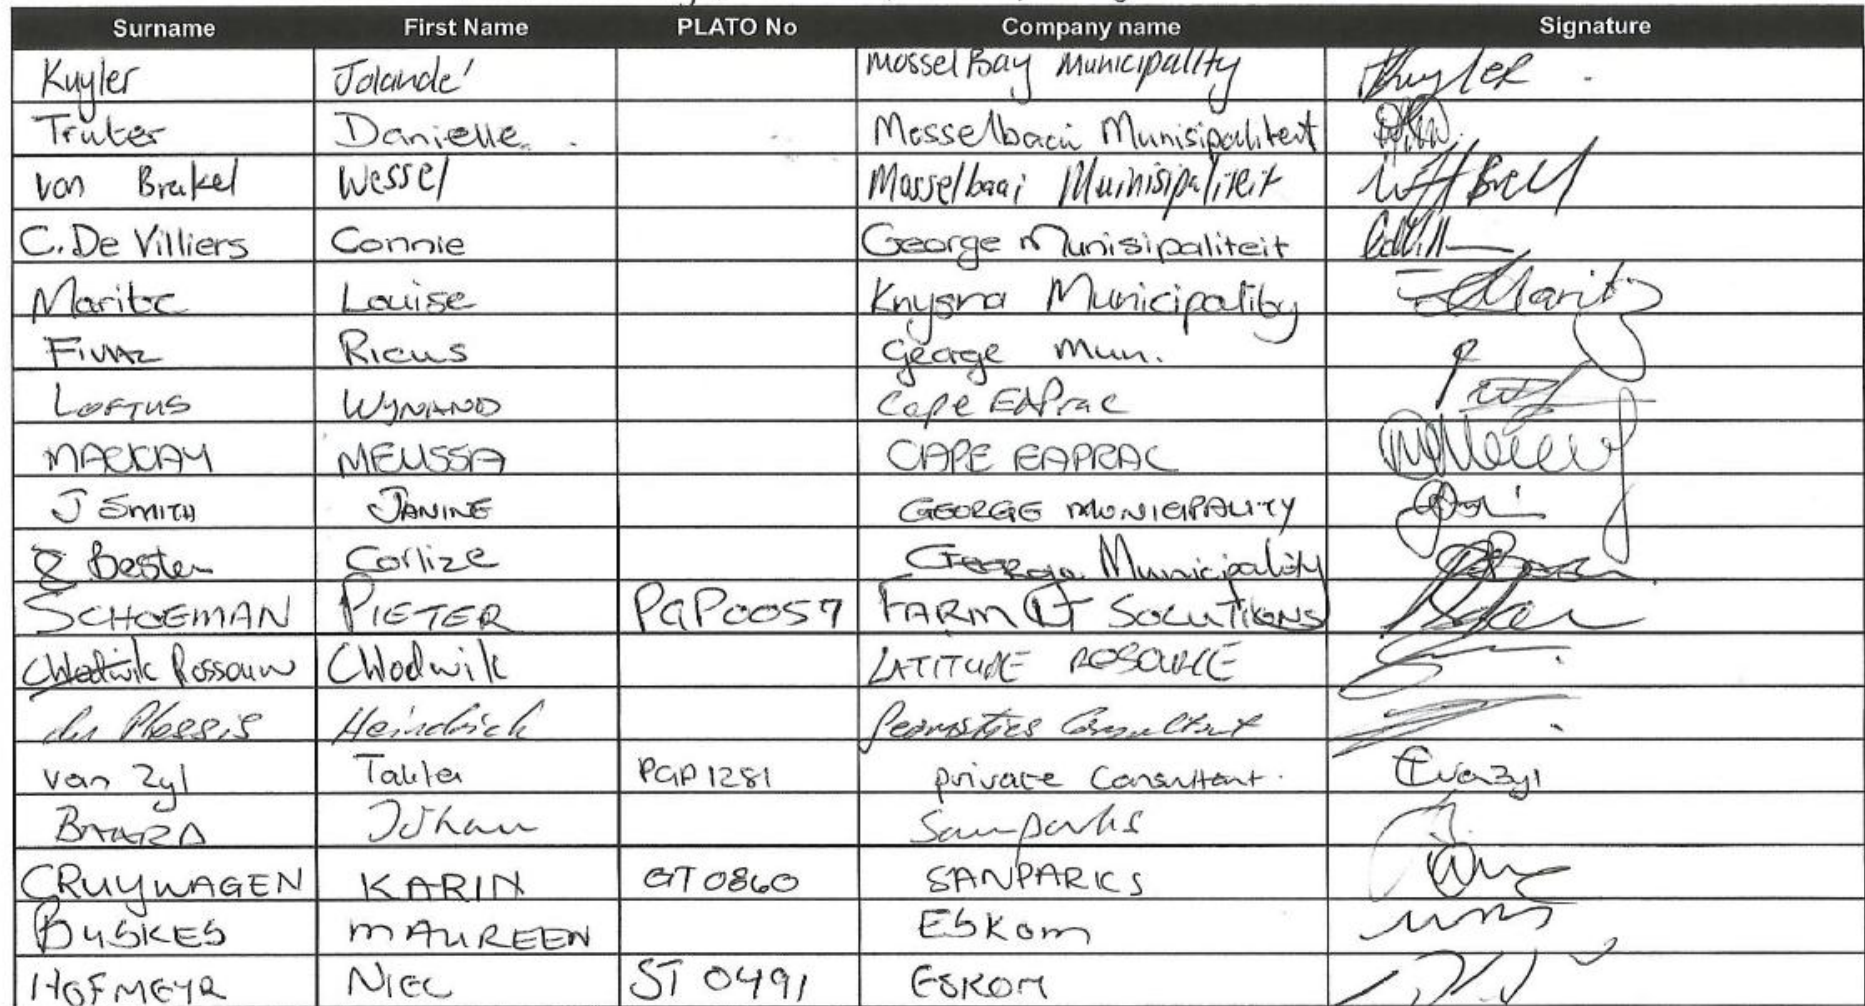 Surname First Name PLATO No Company name Signature
Kuyler Jolandé Mossel Bay Municipality Kuyler
Truter Danielle Mosselbaai Munisipaliteit
van Brakel Wessel Mosselbaai Munisipaliteit
C. De Villiers Connie George Munisipaliteit
Maritz Louise Knysna Municipality Maritz
Fivaz Ricus George Mun.
LOFTUS WYNAND Cape EAPrac
MACKAY MELISSA CAPE EAPRAC
J SMITH JANINE GEORGE MUNICIPALITY
Besten Corlize George Municipality
SCHOEMAN PIETER PGP0057 FARM IT SOLUTIONS
Rossouw Chlodwik LATITUDE RESOURCE
du Plessis Heindrich Consultant
van Zyl PGP1281 private Consultant. vanZyl
Johan Sanparks
CRUYWAGEN KARIN GT0860 SANPARKS
BUSKES MAUREEN ESKOM
HOFMEYR NIEL ST 0491 ESKOM